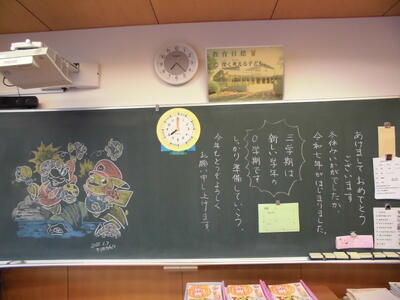 教育目標
よく考える子ども
あけましておめでとう
ございます。
冬休みいかがでしたか。
令和七年がはじまりました。
三学期は
新しい学年の
0学期です
しっかり準備していこう。
今年もどうぞよろしく
お願い申し上げます。
2025.1.7